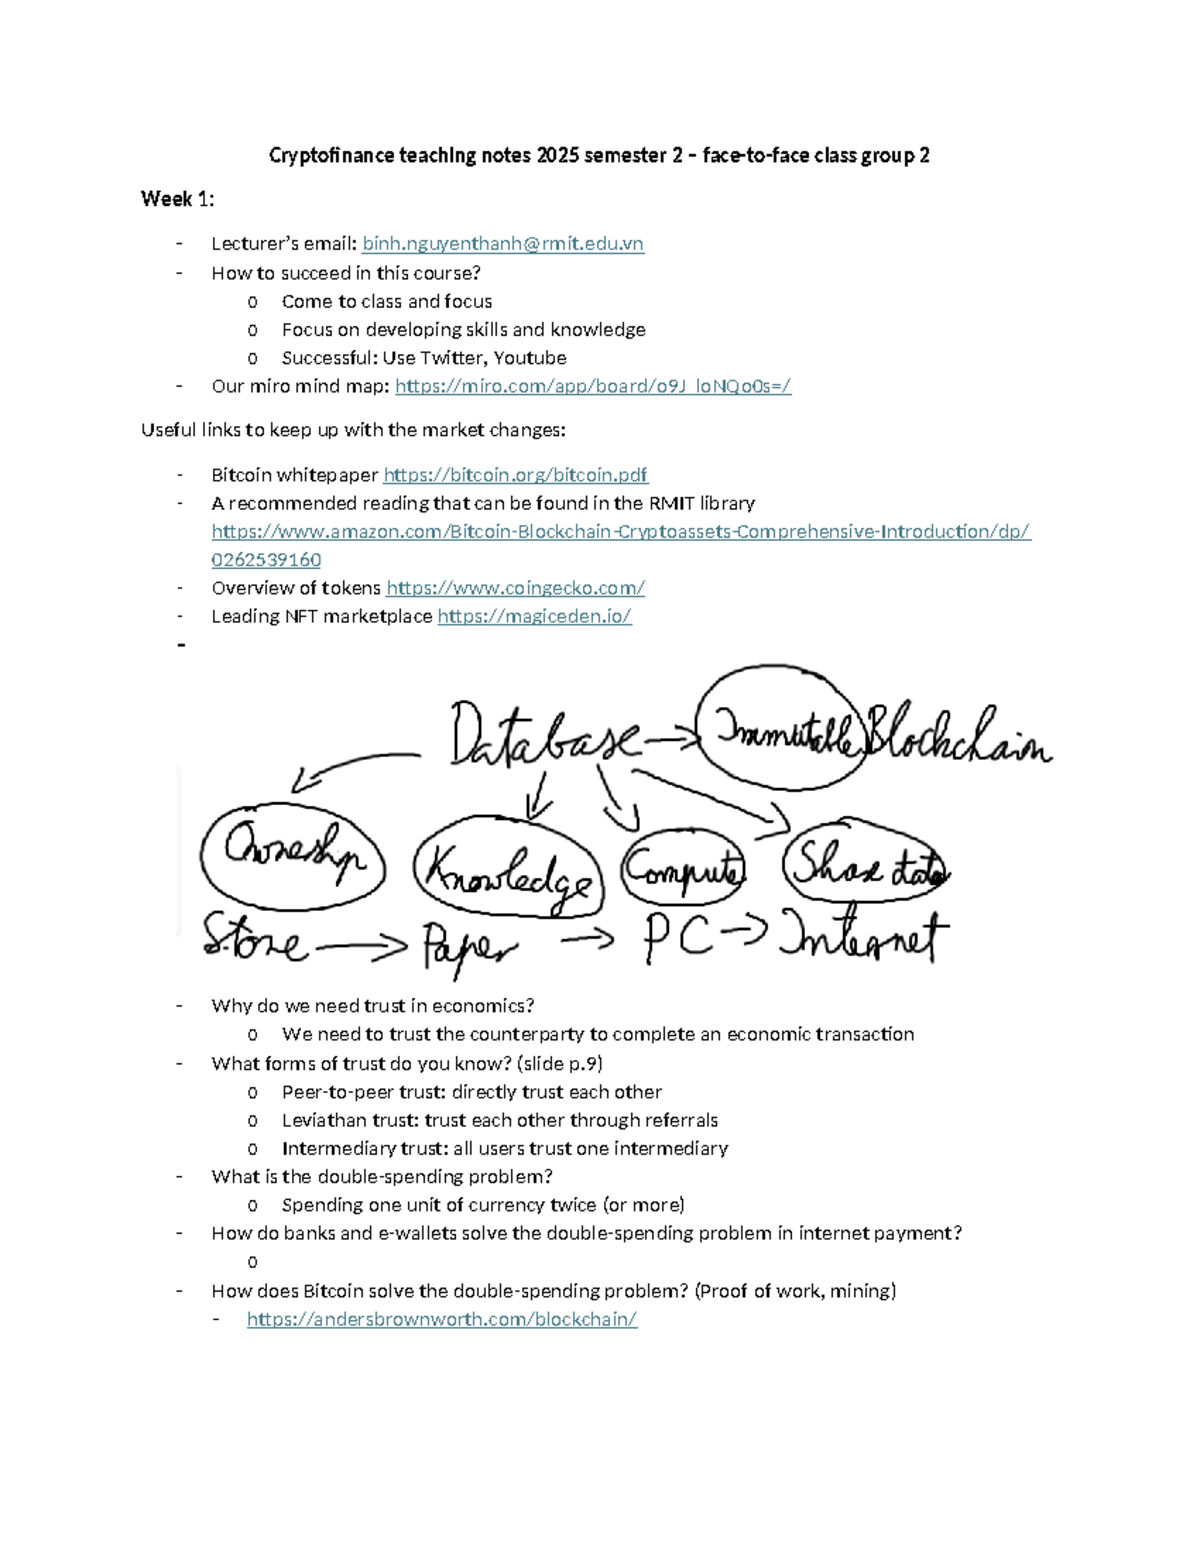 Cryptofinance teaching notes 2025 semester 2 – face-to-face class group 2
Week 1:
- Lecturer's email: binh.nguyenthanh@rmit.edu.vn
- How to succeed in this course?
o Come to class and focus
o Focus on developing skills and knowledge
o Successful: Use Twitter, Youtube
- Our miro mind map: https://miro.com/app/board/o9J_loNQo0s=/
Useful links to keep up with the market changes:
- Bitcoin whitepaper https://bitcoin.org/bitcoin.pdf
- A recommended reading that can be found in the RMIT library
https://www.amazon.com/Bitcoin-Blockchain-Cryptoassets-Comprehensive-Introduction/dp/
0262539160
- Overview of tokens https://www.coingecko.com/
- Leading NFT marketplace https://magiceden.io/
-
Database → Immutable Blockchain
Ownership Knowledge Compute Share data
Store → Paper → PC → Internet
- Why do we need trust in economics?
o We need to trust the counterparty to complete an economic transaction
- What forms of trust do you know? (slide p.9)
o Peer-to-peer trust: directly trust each other
o Leviathan trust: trust each other through referrals
o Intermediary trust: all users trust one intermediary
- What is the double-spending problem?
o Spending one unit of currency twice (or more)
- How do banks and e-wallets solve the double-spending problem in internet payment?
o
- How does Bitcoin solve the double-spending problem? (Proof of work, mining)
- https://andersbrownworth.com/blockchain/